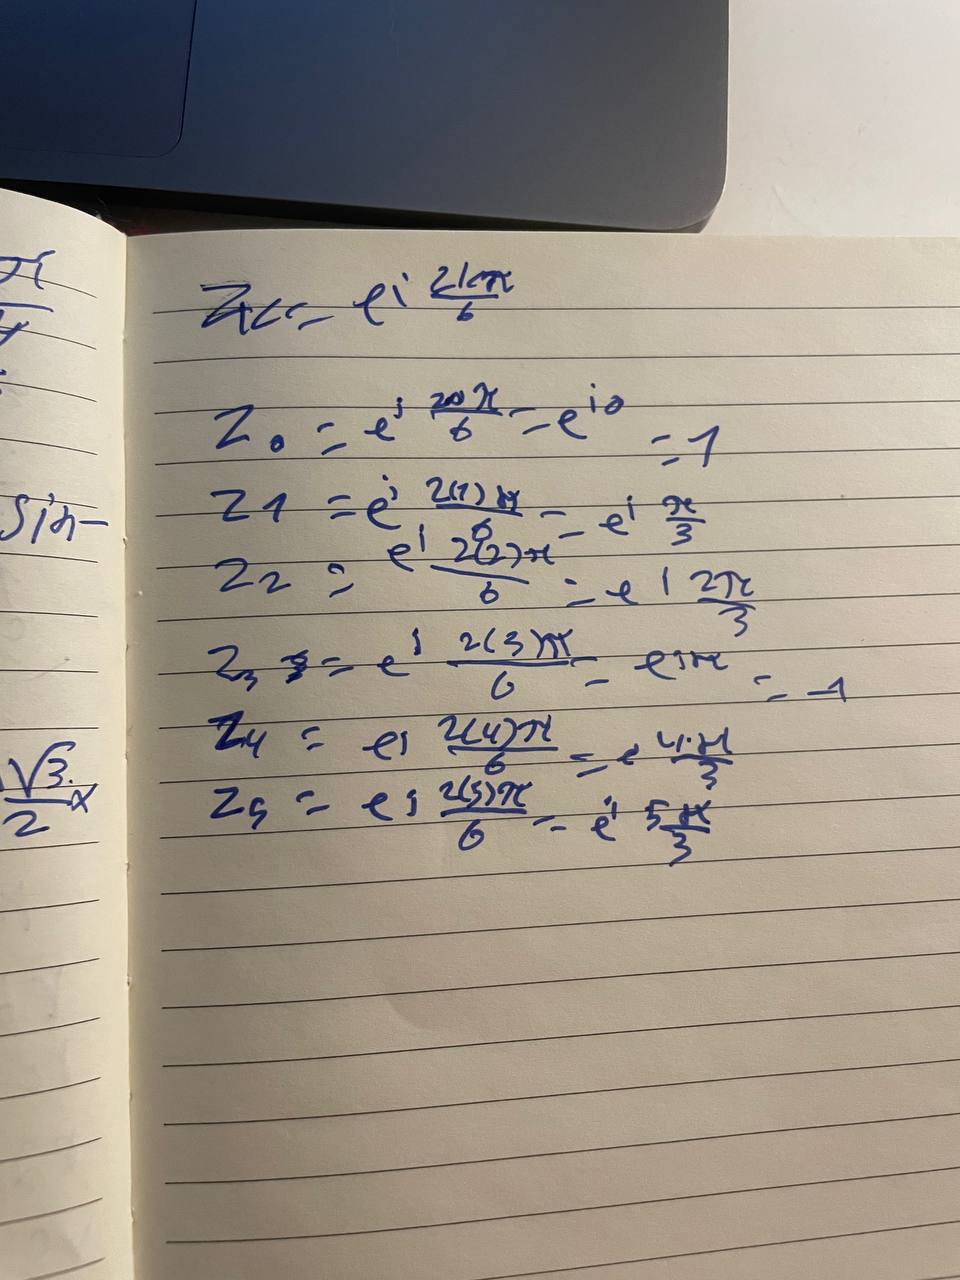 π
4
sin-
√3
2
Zk = e^i 2kπ/6
Z0 = e^i 2·0π/6 = e^i0 = 1
Z1 = e^i 2(1)π/6 = e^i π/3
Z2 = e^i 2(2)π/6 = e^i 2π/3
Z3 = e^i 2(3)π/6 = e^iπ = -1
Z4 = e^i 2(4)π/6 = e 4·π/3
Z5 = e^i 2(5)π/6 = e^i 5π/3